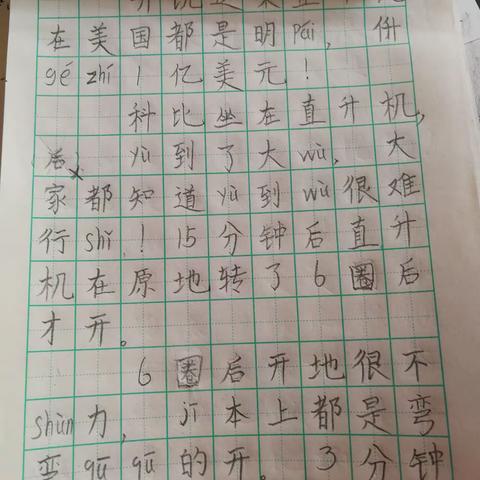 在美国都是明pái，价
gé zhí 1亿美元！
科比坐在直升机，
后yù到了大wù，大
家都知道yù到wù很难
行shǐ！15分钟后直升
机在原地转了6圈后
才开。
6圈后开地很不
shùn力，jī本上都是弯
弯qū qū的开。3分钟